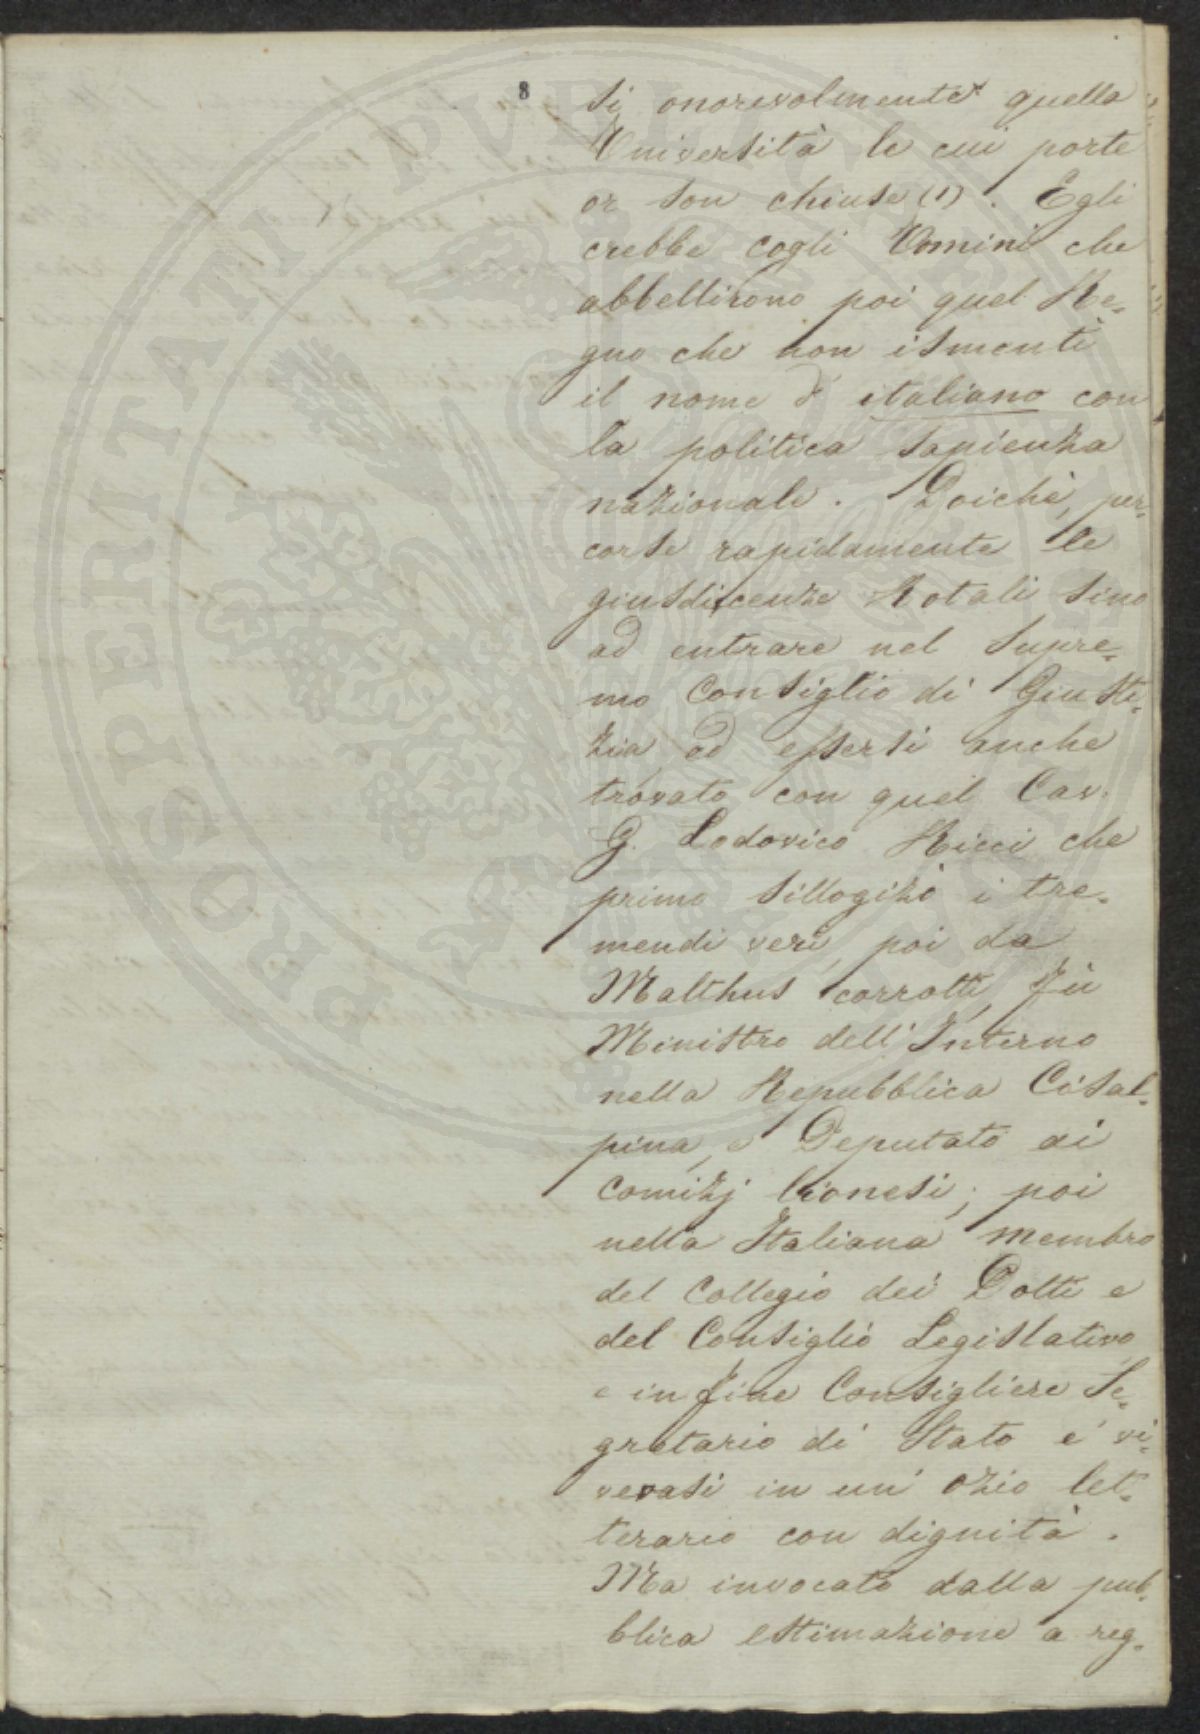 8
si onorevolmente quella
Università le cui porte
or son chiuse (1). Egli
crebbe cogli Uomini che
abbellirono poi quel Re-
gno che non ismentì
il nome d'italiano con
la politica sapienza
nazionale. Poichè, per-
corse rapidamente le
giusdicenze Rotali sino
ad entrare nel Supre-
mo Consiglio di Giusti-
zia, ad essersi anche
trovato con quel Cav.
G. Lodovico Ricci che
primo sillogizò i tre-
mendi veri, poi da
Malthus corrotti, fù
Ministro dell'Interno
nella Repubblica Cisal-
pina, e Deputato ai
Comizj lionesi; poi
nella Italiana membro
del Collegio dei Dotti e
del Consiglio Legislativo,
e in fine Consigliere Se-
gretario di Stato e vi-
vevasi in un' ozio let-
terario con dignità.
Ma invocato dalla pub-
blica estimazione a reg-
PROSPERITATI PVBLICAE